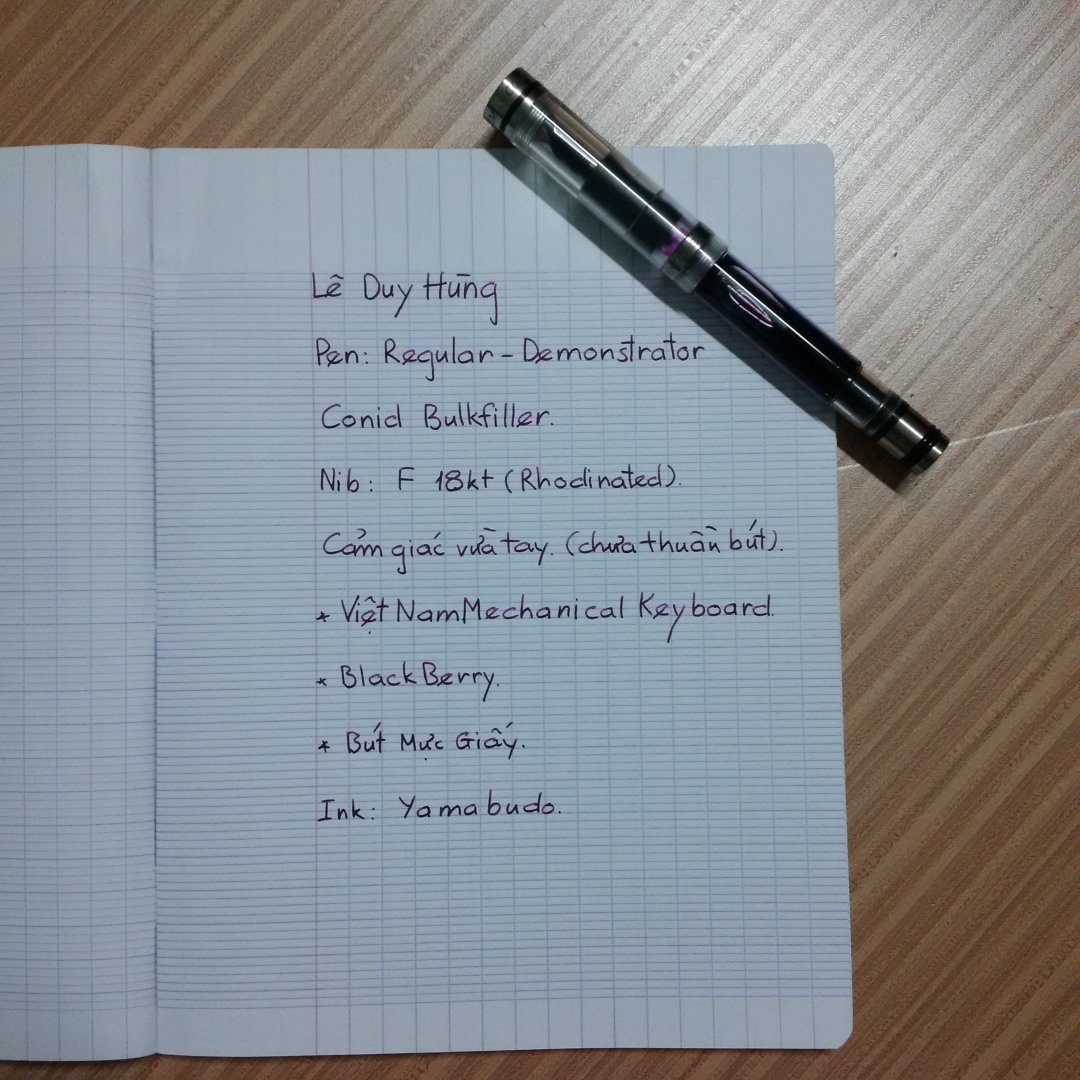 Lê Duy Hùng
Pen: Regular - Demonstrator
Conid Bulkfiller.
Nib: F 18kt (Rhodinated).
Cảm giác vừa tay. (chưa thuần bút).
* Việt Nam Mechanical Keyboard.
* BlackBerry.
* Bút Mực Giấy.
Ink: Yamabudo.